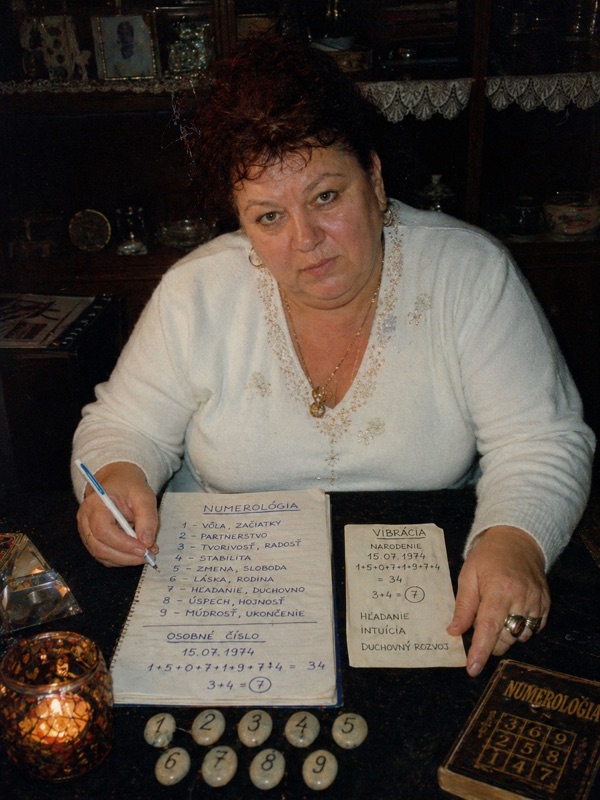 NUMEROLÓGIA
1 - VÔĽA, ZAČIATKY
2 - PARTNERSTVO
3 - TVORIVOSŤ, RADOSŤ
4 - STABILITA
5 - ZMENA, SLOBODA
6 - LÁSKA, RODINA
7 - HĽADANIE, DUCHOVNO
8 - ÚSPECH, HOJNOSŤ
9 - MÚDROSŤ, UKONČENIE
OSOBNÉ ČÍSLO
15.07.1974
1+5+0+7+1+9+7+4 = 34
3+4 = 7
VIBRÁCIA
NARODENIE
15.07.1974
1+5+0+7+1+9+7+4
= 34
3+4 = 7
HĽADANIE
INTUÍCIA
DUCHOVNÝ ROZVOJ
1 2 3 4 5
6 7 8 9
NUMEROLOGIA
3 6 9
2 5 8
1 4 7